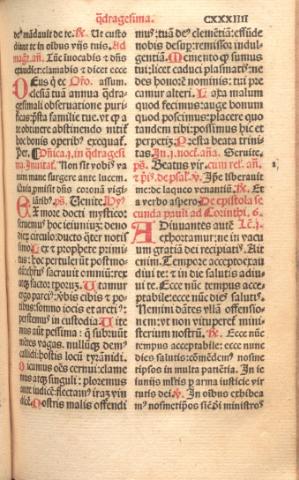 q̃dragesima. CXXXIIII
de⁹ mãdauit de te. ℟. Ut custo
diant te in oĩbus vijs tuis. Ad
mag̃t. añ. Tũc inuocabis ⁊ dñs
exaudiet: clamabis ⁊ dicet ecce
Deus qui Oro. assum.
ecclesiã tuã annua q̃dra-
gesimali obseruatione puri-
ficas: p̃sta familie tue. vt qd̃ a
te obtinere abstinendo nititur
hoc bonis operibꝰ exequat̃.
Dñica .i. in q̃drageſi
ma. Inuitat. Non sit vobis va
num mane surgere ante lucem.
Quia ꝓmisit dñs coronã vigi-
lãtibꝰ. ps. Venite. Hy⁹
Ex more docti mystico:
seruemus hoc ieiuniũ: deno
dieꝝ circulo: ducto q̃ter notis
Lex ⁊ prophete primi-
tus: hoc pertulerũt postmodũ
xp̃us sacrauit omniũ: rex
atqꝫ factor tempoꝝ. Utamur
ergo parci⁹: v̓bis cibis ⁊ po-
tibus: somno iocis et arcti⁹:
perstemus in custodia. Uite
mus aũt pessima: q̃ subruũt
mẽtes vagas. nullũqꝫ dem⁹
callidi: hostis locũ tyrãnidi.
Dicamus oẽs cernui: clame
mus atqꝫ singuli: ploremus
ante iudicẽ: flectam⁹ irã vin
dicẽ. Nostris malis offendi
mus: tuã de⁹ clemẽtiã: effũde
nobis desup: remissor indul-
gentiã. Memento q̃ sumus
tui: licet caduci plasmatis: ne
des honorẽ nominis: tui pre
camur alteri. Laxa malum
quod fecimus: auge bonum
quod poscimus: placere quo
tandem tibi: possimus hic et
perpetĩ. Presta beata trinitas
In .j. noct. aña. Seruite.
ps. Beatus vir. cum rel. añ.
⁊ ps. de psal. ℣. Ipse liberauit
me: de laqueo venantiũ. ℟. Et
a verbo aspero. De epistola se
cunda pauli ad Corinthi. 6.
Adiuuantes autẽ Lc̃. j.
exhortamur: ne in vacu
um gr̃atiã dei recipiatis. Ait
enim. Tempore accepto exau
diui te: ⁊ in die salutis adiu-
ui te. Ecce nũc tempus acce-
ptabile: ecce nũc dies salutis.
Nemini dãtes vllã offensio-
nem: vt non vituperet̃ mini-
sterium nostrũ. ℟. Ecce nũc
tempus acceptabile: ecce nunc
dies salutis: cõmẽdem⁹ nosme
tipsos in multa patiẽtia. In ie
iunijs mltis ꝑ arma iusticie vir
tutis dei. ℣. In oĩbus exhibea
m⁹ nosmetip̃os sic̃ dei ministros